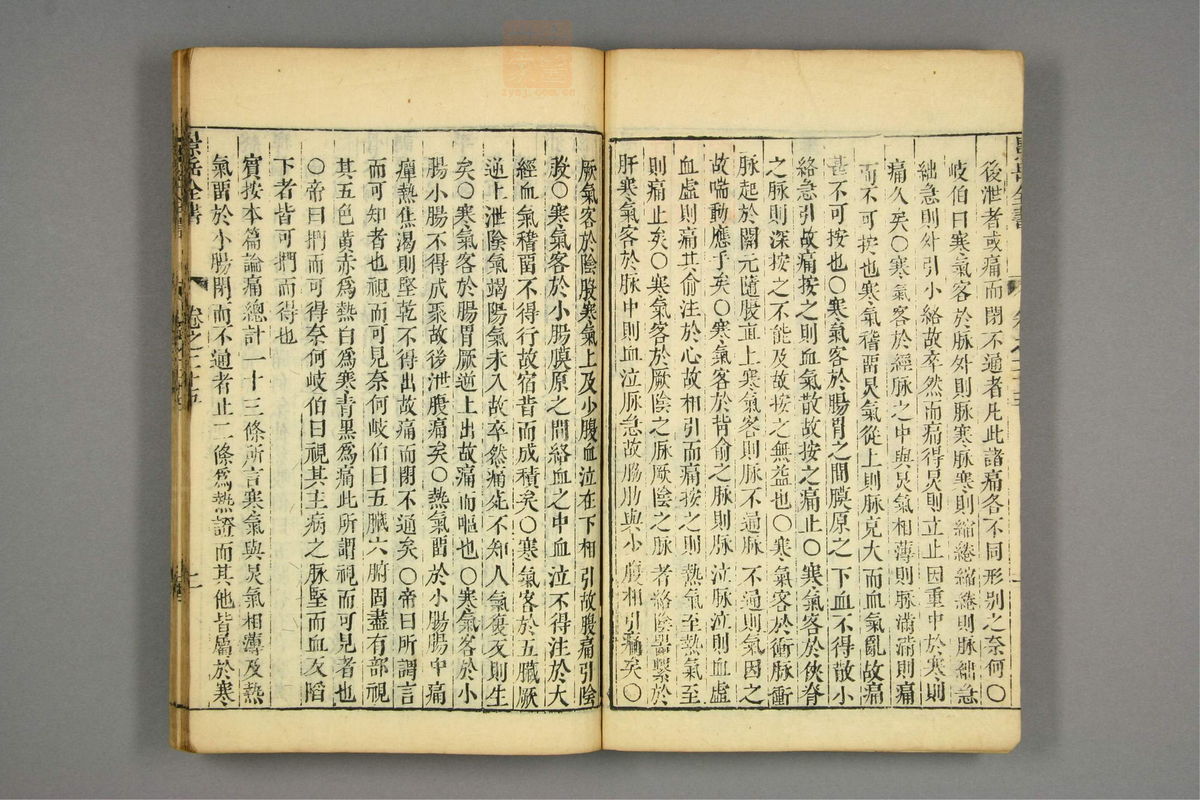 後泄者或痛而閉不通者凡此諸痛各不同形别之奈何○
岐伯曰寒氣客於脉外則脉寒脉寒則縮踡縮踡則脉絀急
絀急則外引小絡故卒然而痛得炅則立止因重中於寒則
痛久矣○寒氣客於經脉之中與炅氣相薄則脉滿滿則痛
而不可按也寒氣稽畱炅氣從上則脉充大而血氣亂故痛
甚不可按也○寒氣客於腸胃之間膜原之下血不得散小
絡急引故痛按之則血氣散故按之痛止○寒氣客於俠脊
之脉則深按之不能及故按之無益也○寒氣客於衝脉衝
脉起於關元隨腹直上寒氣客則脉不通脉不通則氣因之
故喘動應手矣○寒氣客於背俞之脉則脉泣脉泣則血虛
血虛則痛其俞注於心故相引而痛按之則熱氣至熱氣至
則痛止矣○寒氣客於厥陰之脉厥陰之脉者絡陰器繫於
肝寒氣客於脉中則血泣脉急故脇肋與小腹相引痛矣○
厥氣客於陰股寒氣上及少腹血泣在下相引故腹痛引陰
股○寒氣客於小腸膜原之間絡血之中血泣不得注於大
經血氣稽畱不得行故宿昔而成積矣○寒氣客於五臟厥
逆上泄陰氣竭陽氣未入故卒然痛死不知人氣復反則生
矣○寒氣客於腸胃厥逆上出故痛而嘔也○寒氣客於小
腸小腸不得成聚故後泄腹痛矣○熱氣畱於小腸腸中痛
癉熱焦渴則堅乾不得出故痛而閉不通矣○帝曰所謂言
而可知者也視而可見奈何岐伯曰五臟六腑固盡有部視
其五色黃赤爲熱白爲寒青黑爲痛此所謂視而可見者也
○帝曰捫而可得奈何岐伯曰視其主病之脉堅而血及陷
下者皆可捫而得也
賓按本篇論痛總計一十三條所言寒氣與炅氣相薄及熱
氣畱於小腸閉而不通者止二條爲熱證而其他皆屬於寒
景岳全書
卷之二十五